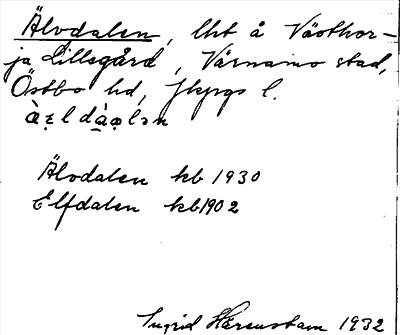 Älvdalen, lht å Västhor-
ja Lillegård, Värnamo stad,
Östbo hd, Jkpgs l.
Älvdalen kb 1930
Elfdalen kb 1902
Ingrid Härenstam 1932